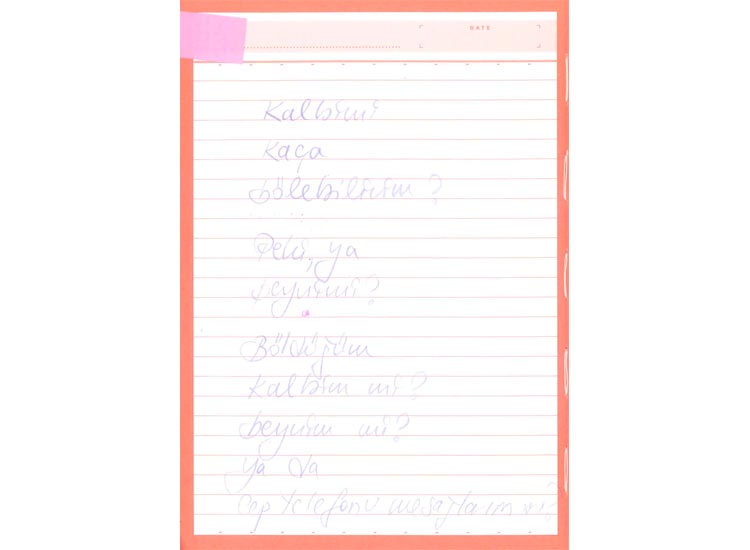 DATE
Kalbimi
Kaça
bölebilirim ?
Peki, ya
beynimi?
Böldüğüm
Kalbim mi?
beynim mi?
ya da
Cep telefonu mesajlarım mı?